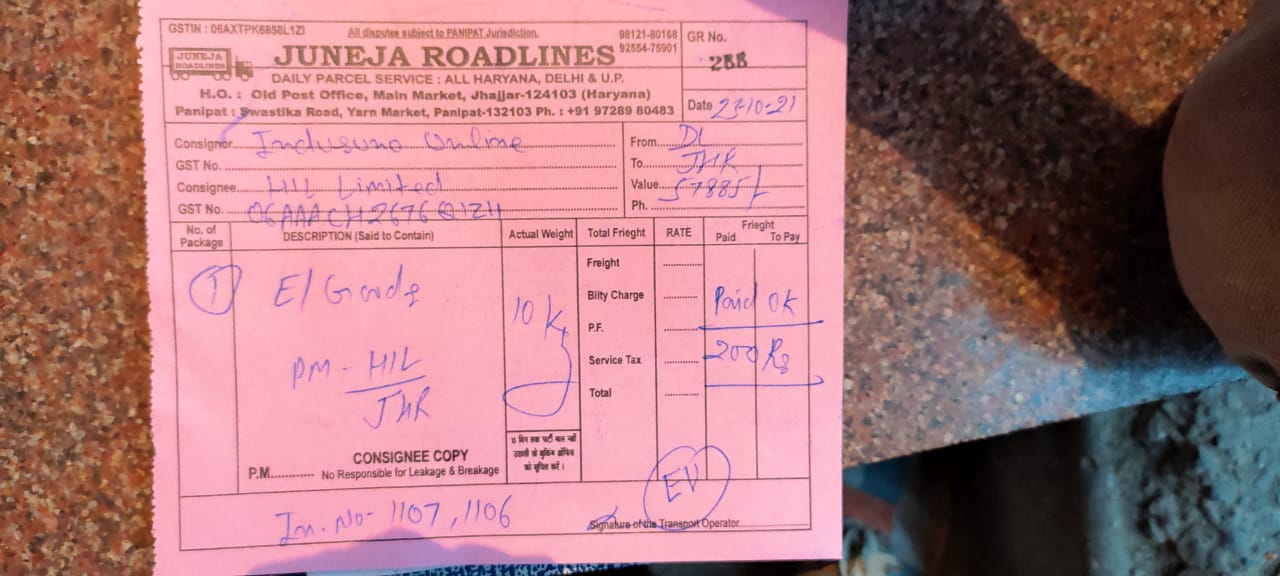 GSTIN : 06AXTPK6858L1ZI
All disputes subject to PANIPAT Jurisdiction.
98121-80168
92554-75901
JUNEJA ROADLINES
JUNEJA ROADLINES
DAILY PARCEL SERVICE : ALL HARYANA, DELHI & U.P.
H.O. : Old Post Office, Main Market, Jhajjar-124103 (Haryana)
Panipat : Swastika Road, Yarn Market, Panipat-132103 Ph. : +91 97289 80483
GR No.
288
Date 23-10-21
Consignor Indusuno Online
GST No.
Consignee HIL Limited
GST No. 06AAACH2676Q1ZH
From DL
To JHR
Value 57885/
Ph.
No. of Package
DESCRIPTION (Said to Contain)
Actual Weight
Total Frieght
RATE
Frieght
Paid To Pay
1
E/Goods
10 Kg
PM - HIL
JHR
Freight
Bilty Charge
P.F.
Service Tax
Total
Paid OK
200 Rs
15 दिन तक पार्टी माल नहीं
उठाती तो बुकिंग ऑफिस
को सूचित करें।
CONSIGNEE COPY
P.M............ No Responsible for Leakage & Breakage
In. No- 1107, 1106
EV
Signature of the Transport Operator